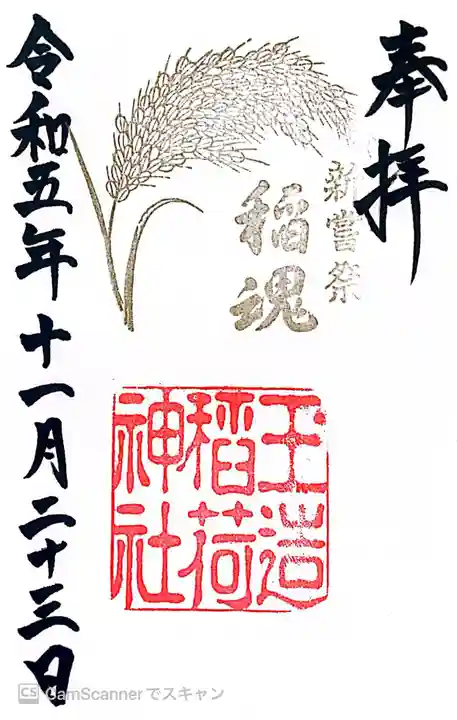 奉拝
新嘗祭
稲魂
玉造
稲荷
神社
令和五年十一月二十三日
CS CamScannerでスキャン